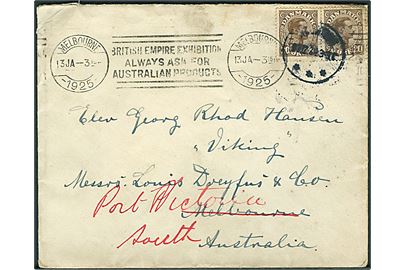 MELBOURNE
13JA-3
1925
BRITISH EMPIRE EXHIBITION
ALWAYS ASK FOR
AUSTRALIAN PRODUCTS
MELBOURNE
13JA-3
1925
DANMARK
DANMARK
Elev Georg Rhod Hansen
"Viking"
Messrs. Louis Dreyfus & Co.
Port Victoria
Melbourne
South Australia.